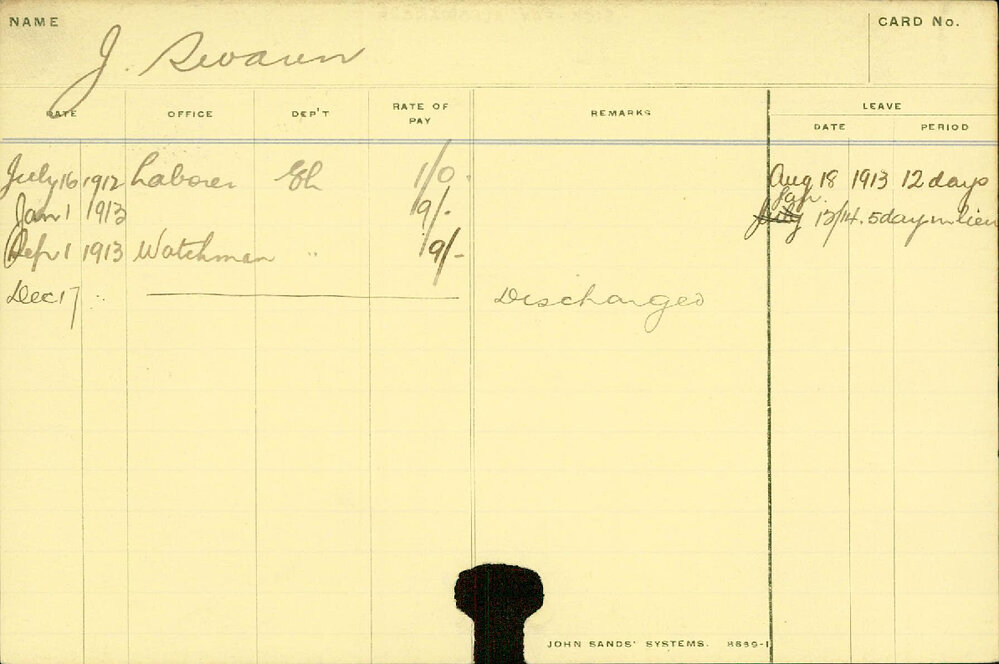 NAME
J. Swann
CARD No.
DATE OFFICE DEP'T RATE OF PAY REMARKS LEAVE
DATE PERIOD
July 16 1912 Laborer Eh 1/0. Aug 18 1913 12 days
Jan 1 1913 9/- Jan. July 13/14. 5 days in lieu
Sep 1 1913 Watchman " 9/-
Dec 17 " Discharged
JOHN SANDS' SYSTEMS. 8639-1